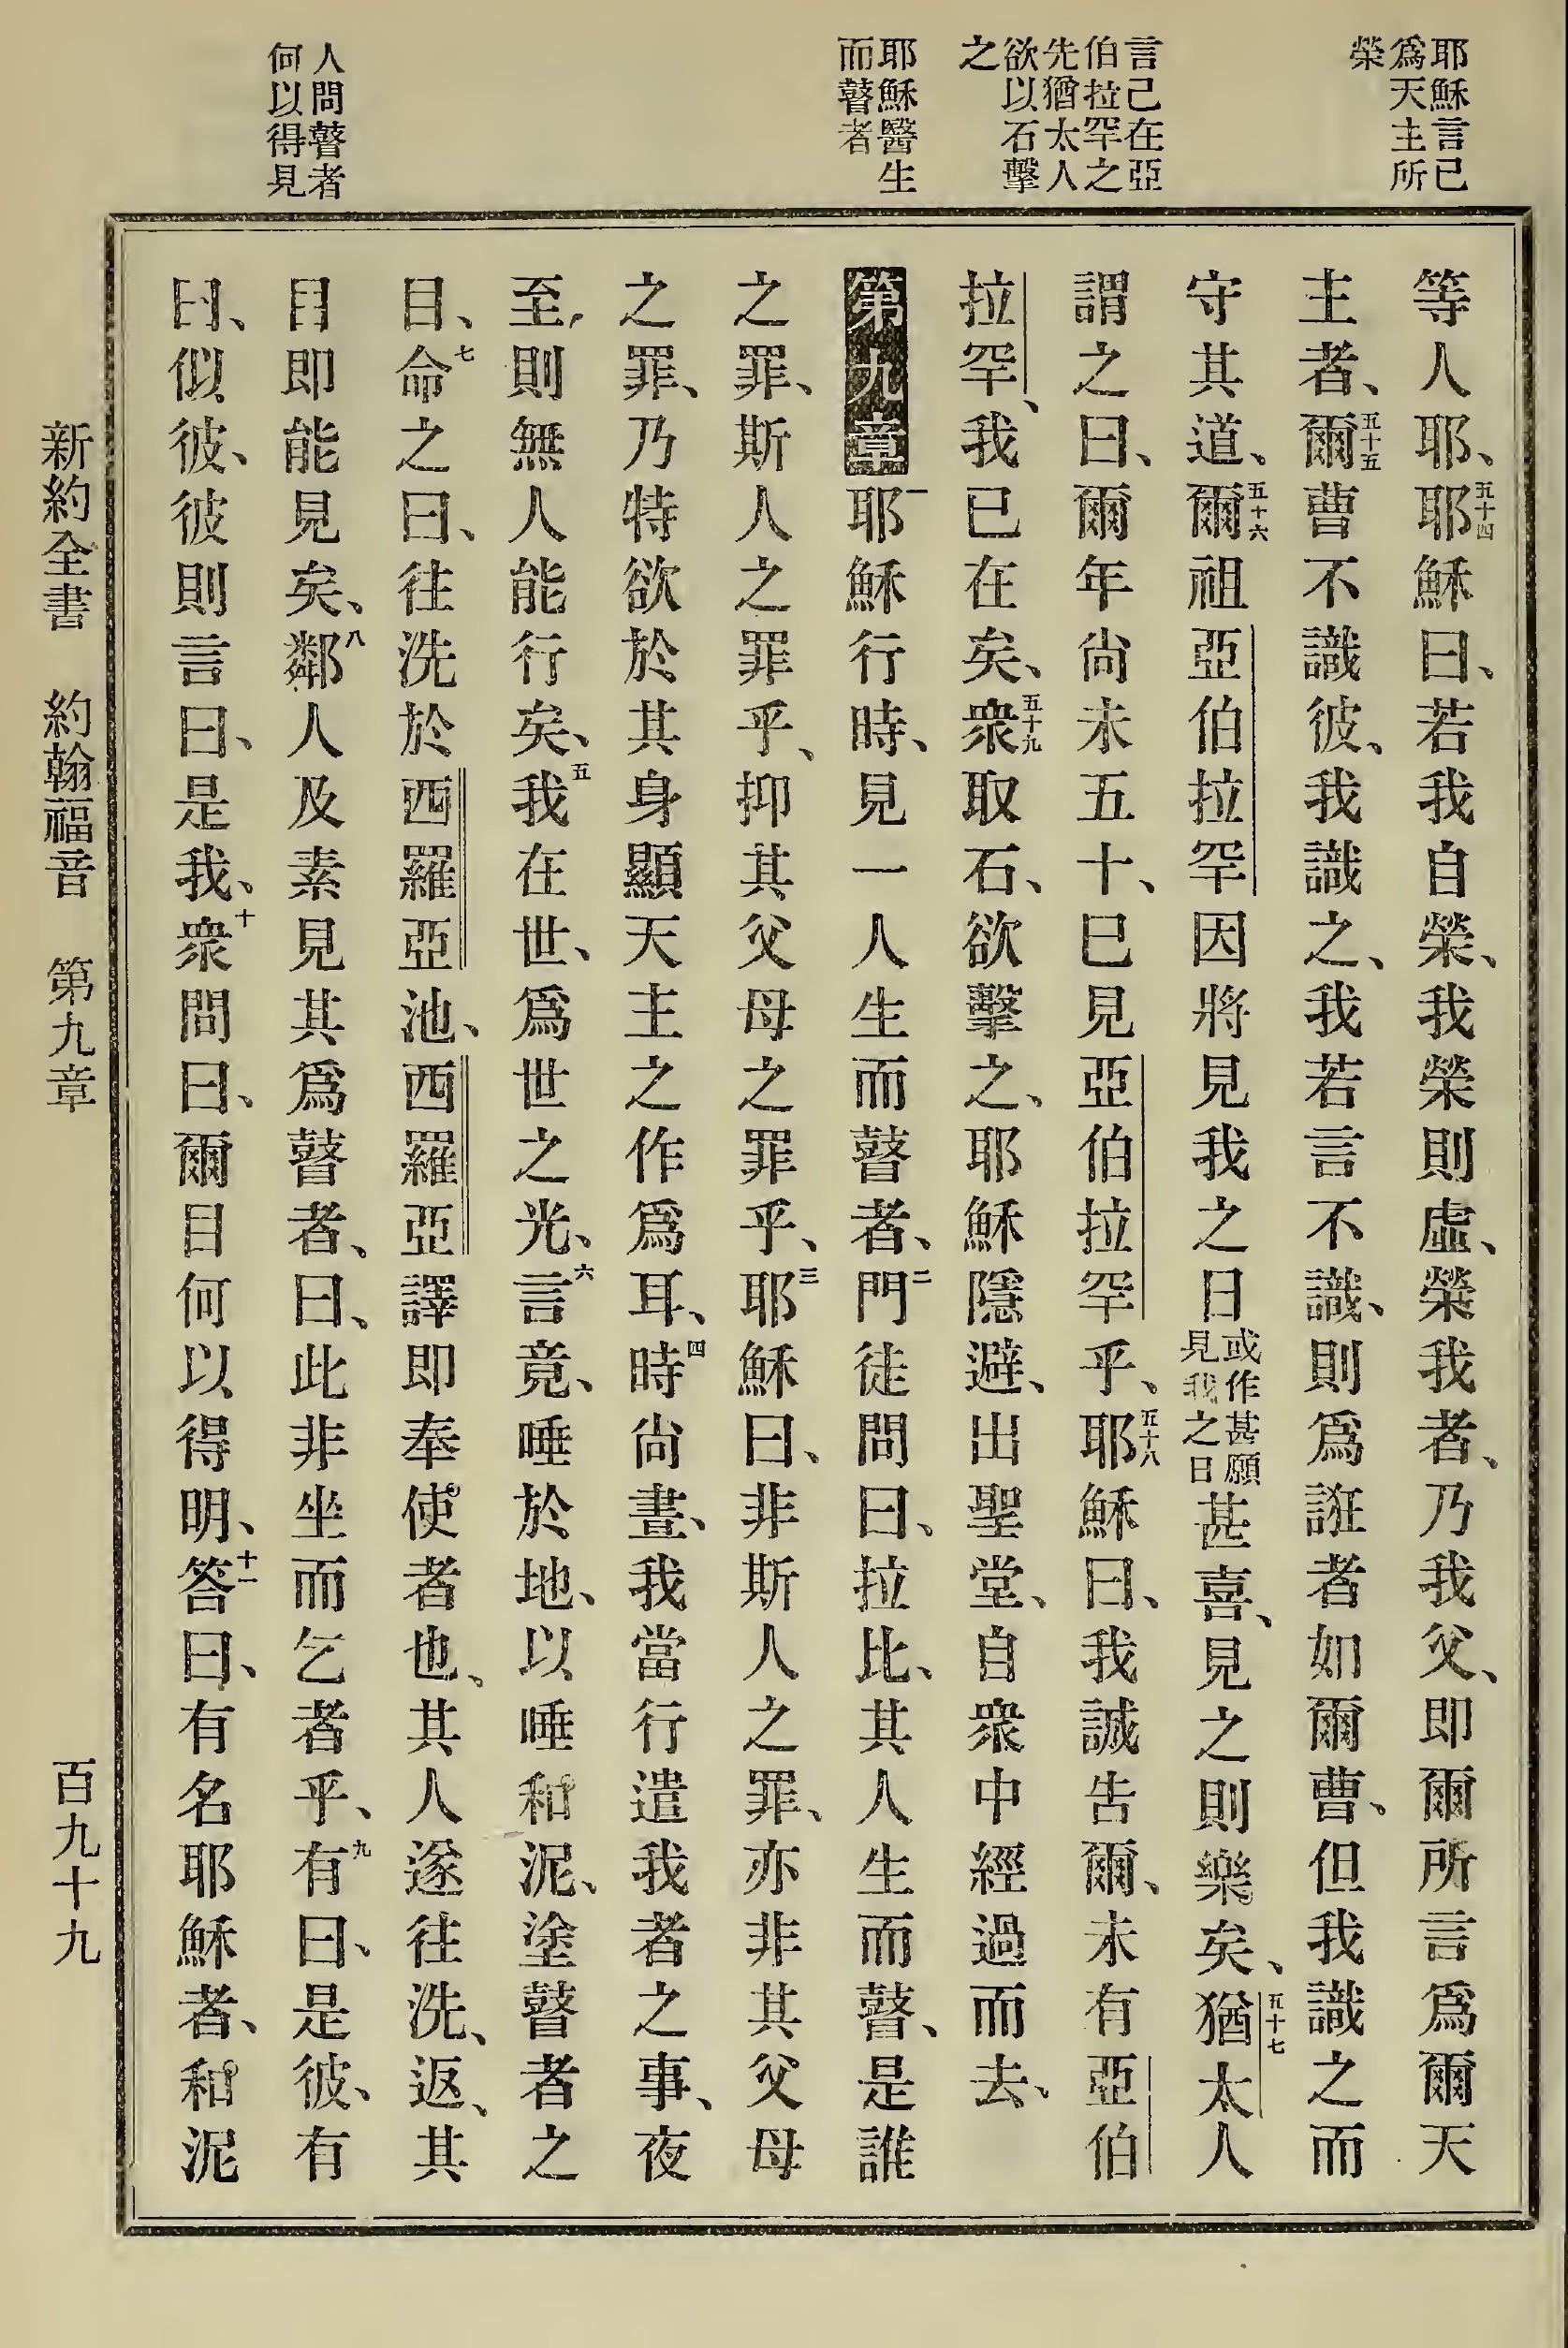 耶穌言己
爲天主所
榮
言己在亞
伯拉罕之
先猶太人
欲以石擊
之
耶穌醫生
而瞽者
人問瞽者
何以得見
等人耶、五十四耶穌曰、若我自榮、我榮則虛、榮我者、乃我父、即爾所言爲爾天
主者、五十五爾曹不識彼、我識之、我若言不識、則爲誑者如爾曹、但我識之而
守其道、五十六爾祖亞伯拉罕因將見我之日或作甚願見我之日甚喜、見之則樂矣、五十七猶太人
謂之曰、爾年尚未五十、已見亞伯拉罕乎、五十八耶穌曰、我誠告爾、未有亞伯
拉罕、我已在矣、五十九衆取石、欲擊之、耶穌隱避、出聖堂、自衆中經過而去、
第九章一耶穌行時、見一人生而瞽者、二門徒問曰、拉比、其人生而瞽、是誰
之罪、斯人之罪乎、抑其父母之罪乎、三耶穌曰、非斯人之罪、亦非其父母
之罪、乃特欲於其身顯天主之作爲耳、四時尚晝、我當行遣我者之事、夜
至、則無人能行矣、五我在世、爲世之光、六言竟、唾於地、以唾和泥、塗瞽者之
目、七命之曰、往洗於西羅亞池、西羅亞譯即奉使者也、其人遂往洗、返、其
目即能見矣、八鄰人及素見其爲瞽者、曰、此非坐而乞者乎、九有曰、是彼、有
曰、似彼、彼則言曰、是我、十衆問曰、爾目何以得明、十一答曰、有名耶穌者、和泥
新約全書 約翰福音 第九章 百九十九